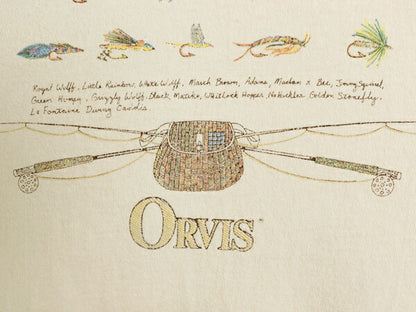 Royal Wulff, Little Rainbow, White Wulff, March Brown, Adams, Madam X Bee, Jimmy Squirrel,
Green Hungy, Grizzly Wulff, Black Matuka, Whitlock Hopper, Golden Stonefly,
La Fontaine Diving Caddis
ORVIS